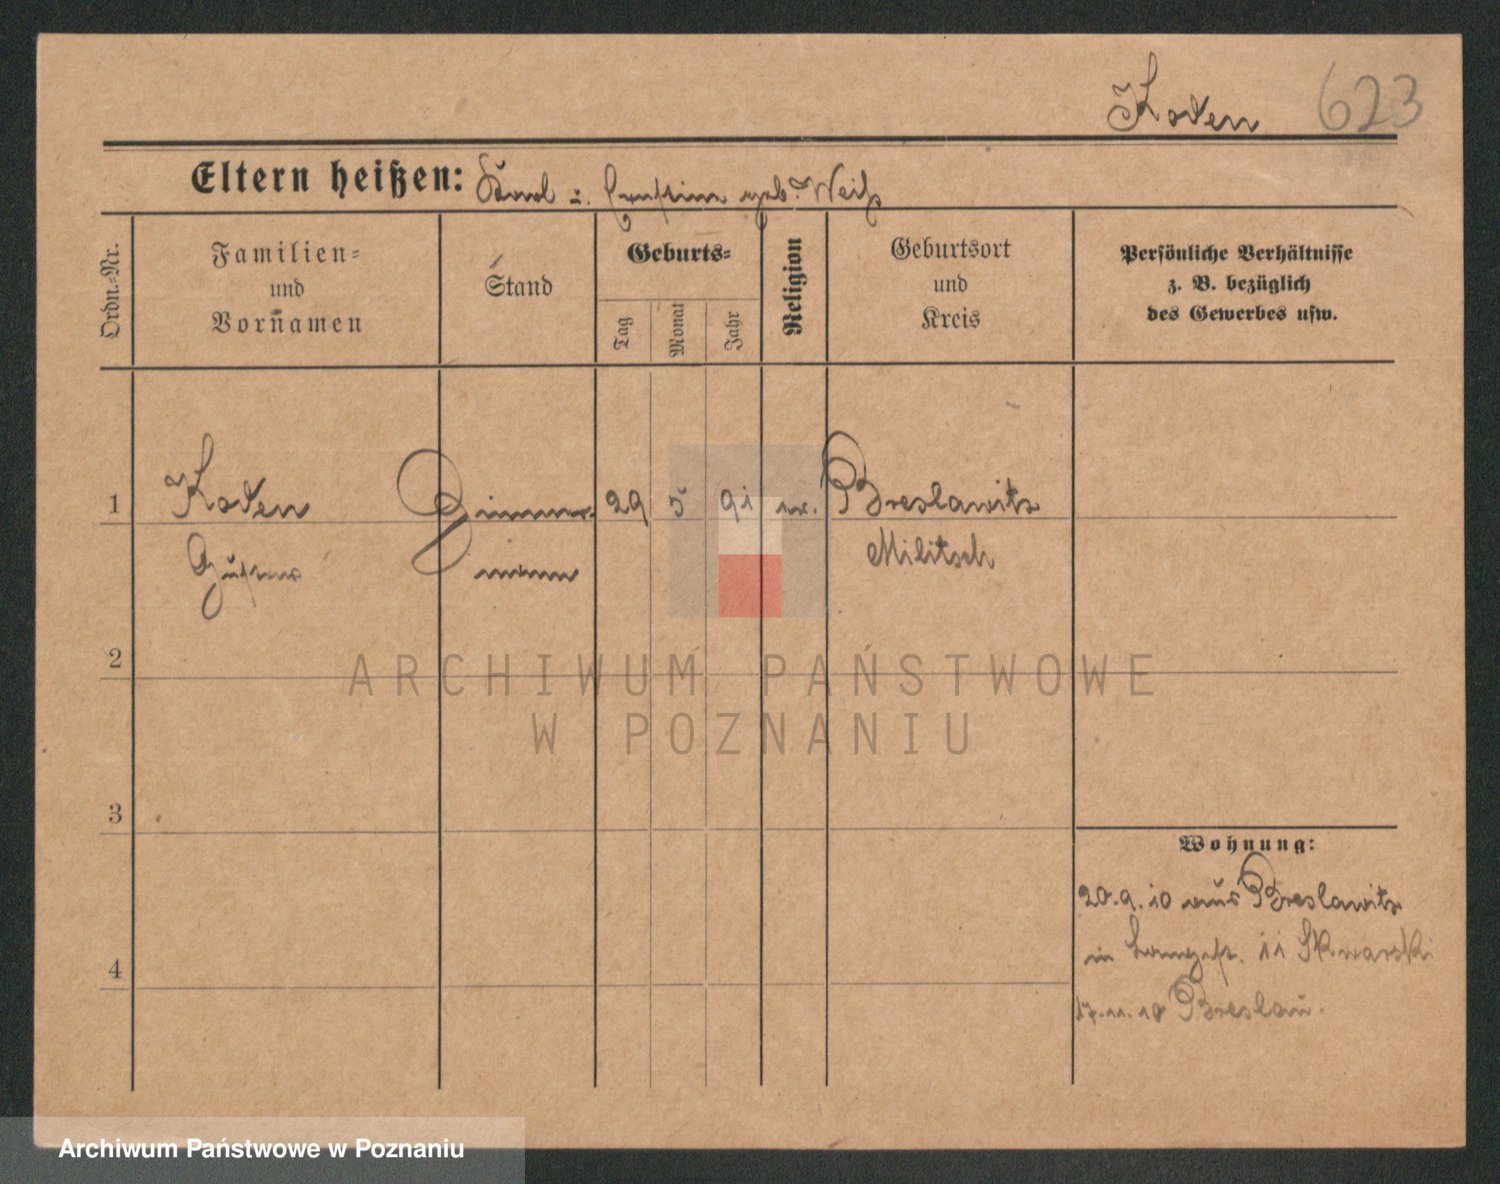 Koden 623
Eltern heißen: Karl u. geb. Weiß
Ordn.-Nr.
Familien-
und
Vornamen
Stand
Geburts-
Tag
Monat
Jahr
Religion
Geburtsort
und
Kreis
Persönliche Verhältnisse
z. B. bezüglich
des Gewerbes usw.
1 Koden Zimmer- 29 5 91 ev. Breslawitz
Gustav mann Militsch
2
ARCHIWUM PAŃSTWOWE
W POZNANIU
3
Wohnung:
20.9.10 aus Breslawitz
in 11 Skwarski
4
17.11.10 Breslau.
Archiwum Państwowe w Poznaniu